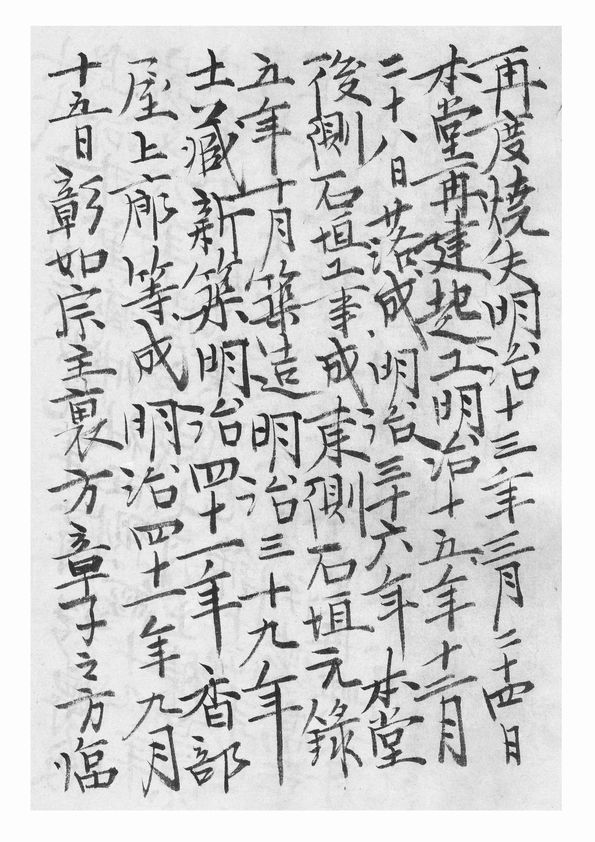 再度焼失明治十三年三月二十四日
本堂再建起工明治十五年十二月
二十八日落成明治三十六年本堂
後側石垣工事成東側石垣元錄
五年十月築造明治三十九年
土藏新築明治四十一年香部
屋上廊等成明治四十一年九月
十五日彰如宗主裏方章子之方臨